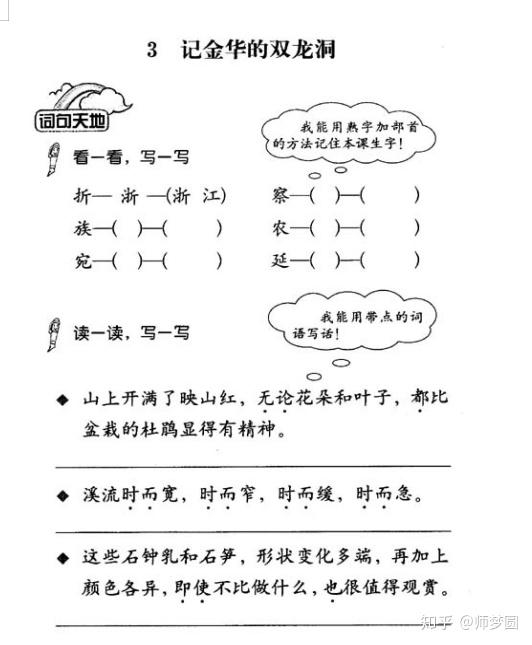 3 记金华的双龙洞
词句天地
我能用熟字加部首
的方法记住本课生字!
看一看,写一写
折— 浙 —(浙 江) 察—( )—( )
族—( )—( ) 农—( )—( )
宛—( )—( ) 延—( )—( )
我能用带点的词
语写话!
读一读,写一写
◆ 山上开满了映山红,无论花朵和叶子,都比
盆栽的杜鹃显得有精神。
◆ 溪流时而宽,时而窄,时而缓,时而急。
◆ 这些石钟乳和石笋,形状变化多端,再加上
颜色各异,即使不比做什么,也很值得观赏。
知乎 @师梦圆